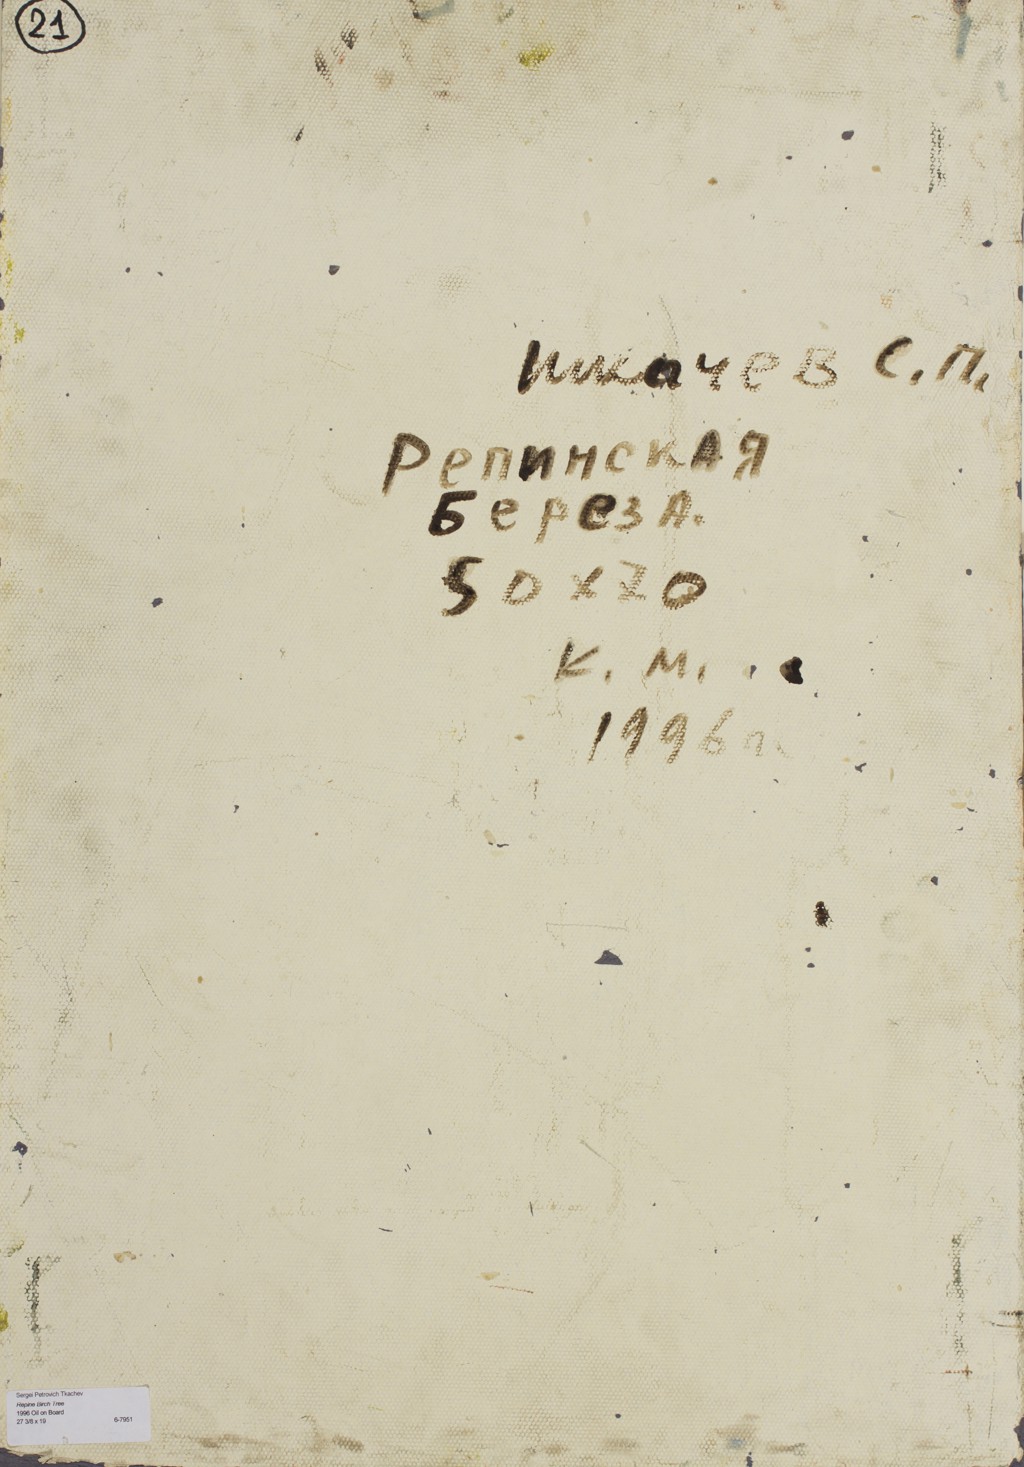 21
Ткачев С.П.
Репинская
Береза.
50х70
К. М.
1996г.
Sergei Petrovich Tkachev
Repine Birch Tree
1996 Oil on Board
27 3/8 x 19
6-7951